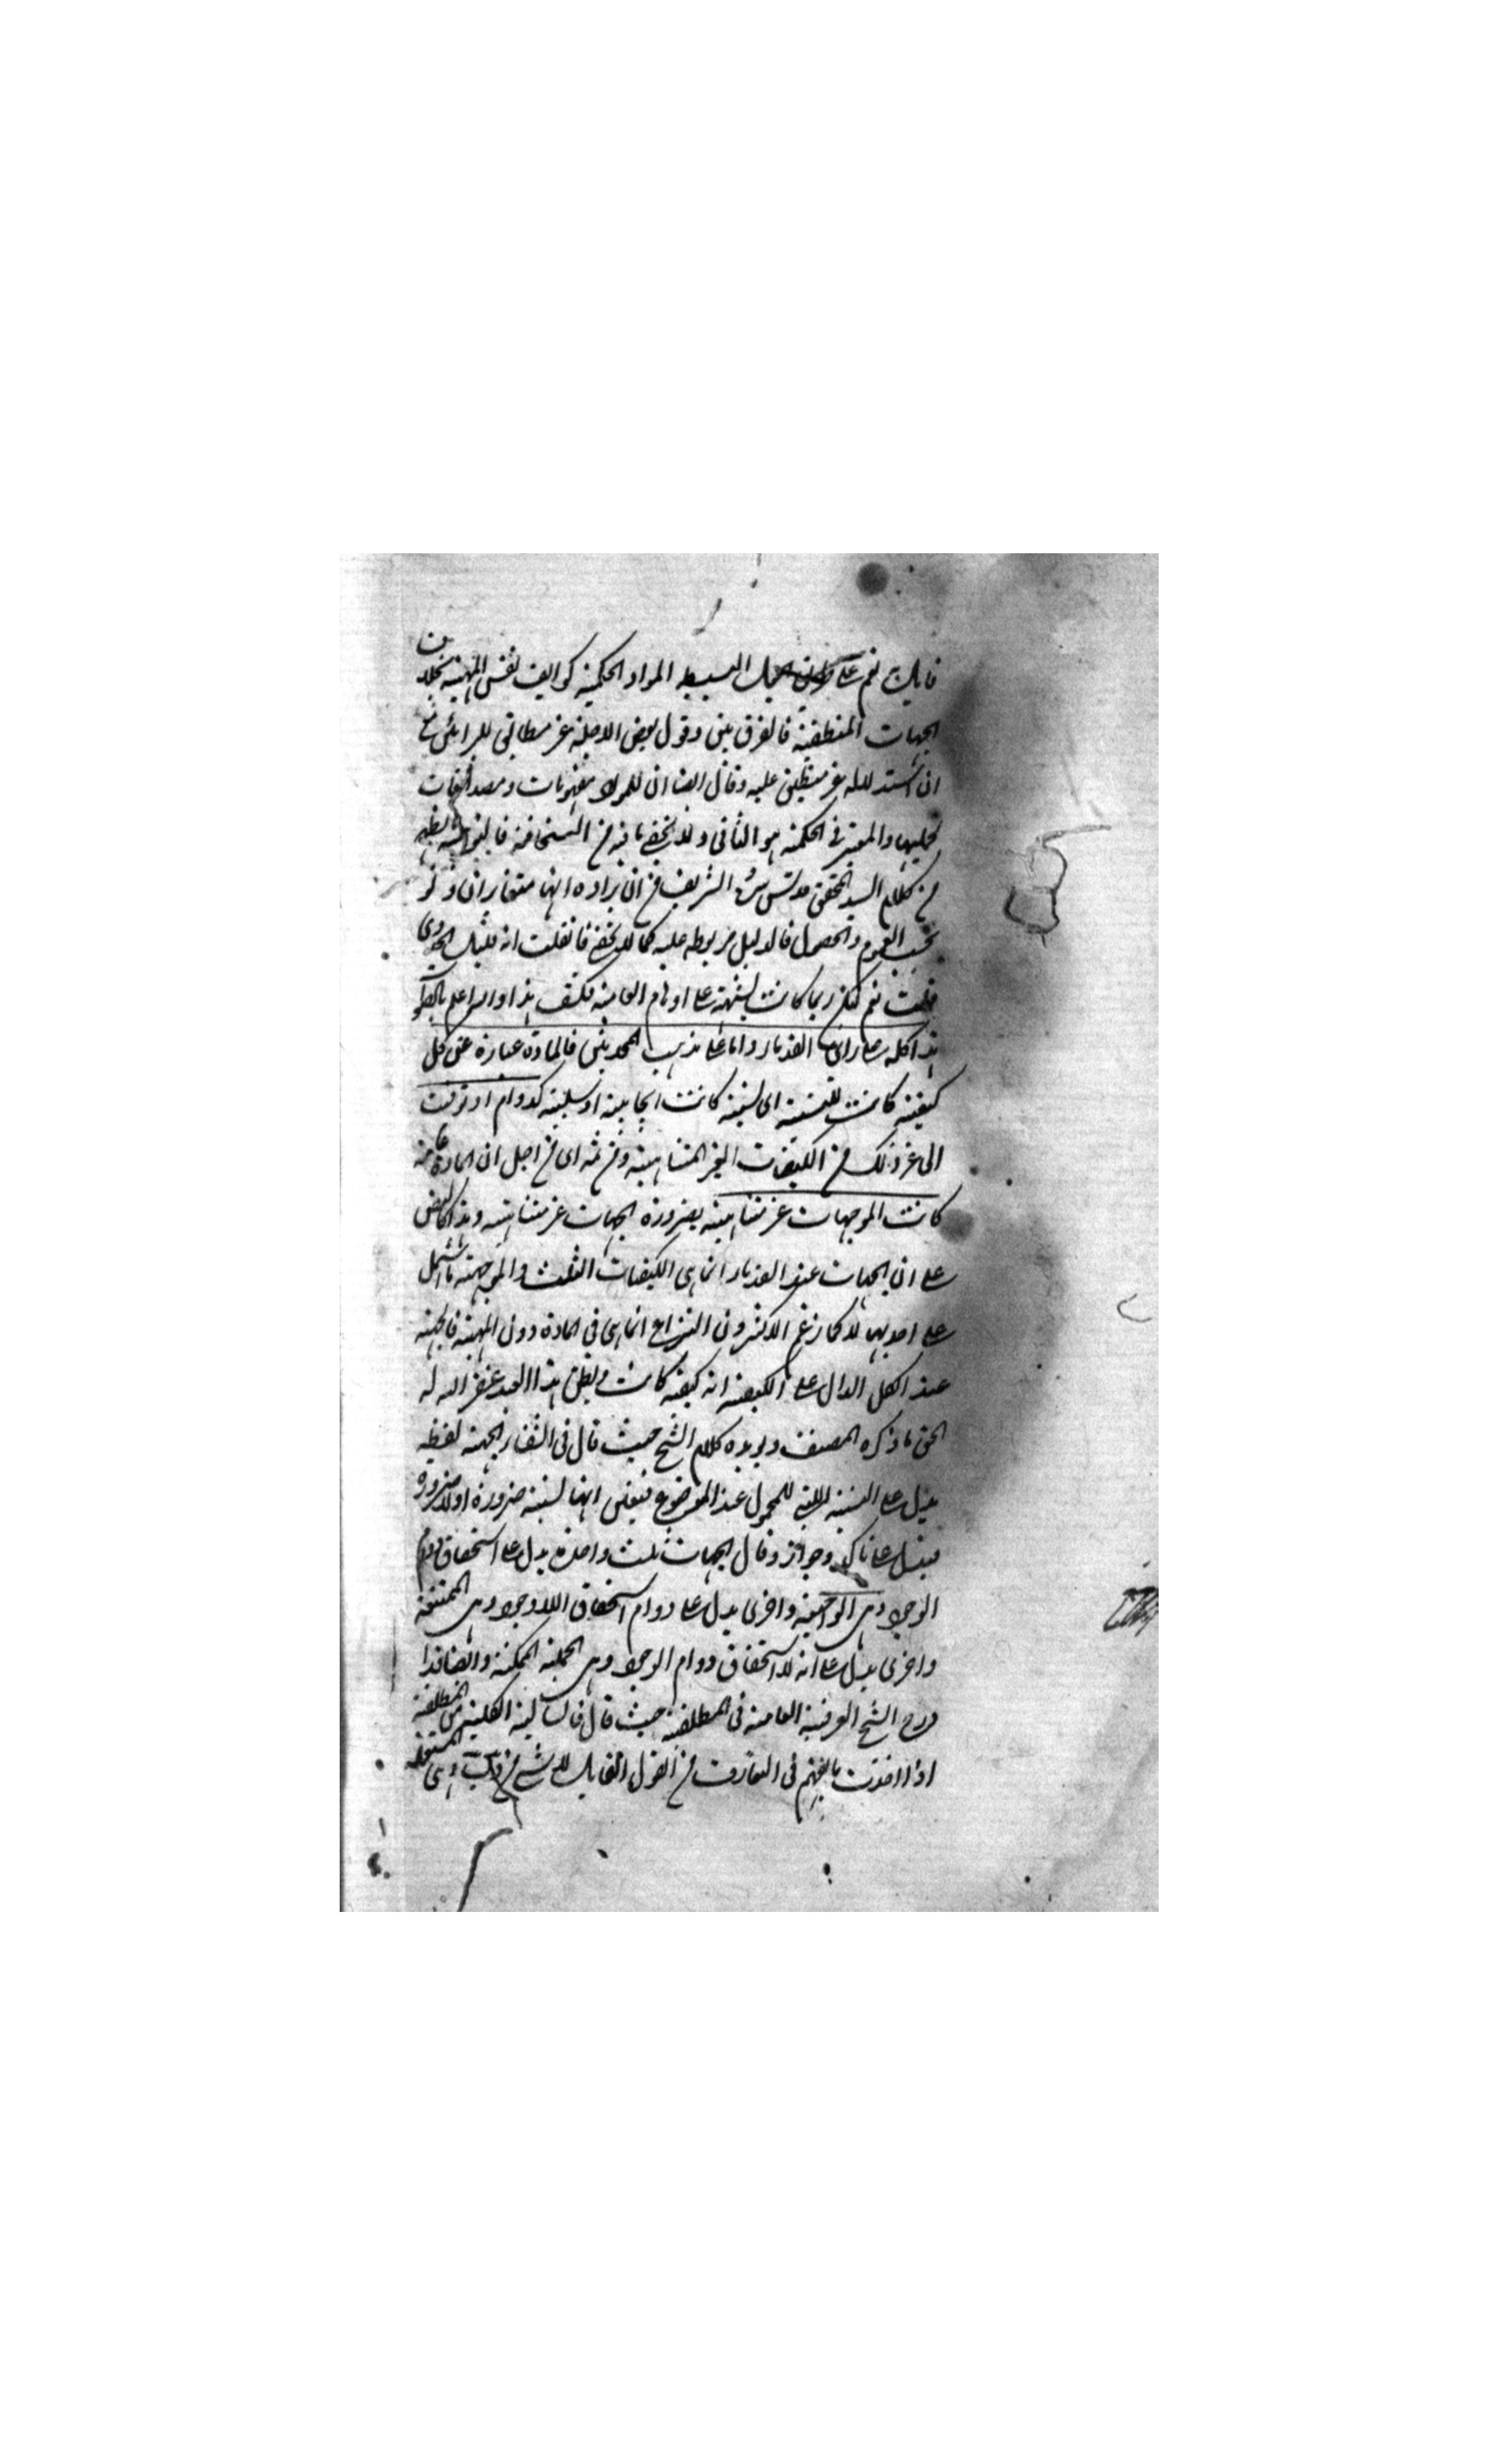 نعم على السبيط المواد الحكمية كوايف نفس المهية بخلاف
الجهات المنطقية فالفرق بين وقول بعض الاجلة غير مطابق للرائين مع
ان استدلاله غير منطبق عليه وقال ايضا ان للمواد مفهومات ومصداقات
والمعتبر في الحكمة هو الثاني ولا يخفى ما فيه من السخافة
من كلام السيد المحقق قدس سره الشريف من ان مراده انها متغايران
بحسب العموم والحصول فالدليل مربوطة عليه كما لا يخفى فان قلت انه
قلت نعم لكن ربما كانت شبهة على اوهام العامة فكشف هذا والله اعلم بالصواب
هذا كله على رأى القدماء واما على مذهب المحدثين فالمادة عبارة عن كل
كيفية كانت للنسبة اى نسبة كانت ايجابية او سلبية كدوام او توقيت
الى غير ذلك من الكيفيات الغير المتناهية ومن ثمه اى من اجل ان المادة عامة
كانت الموجهات غير متناهية بضرورة الجهات غير متناهية وهذا كالنص
على ان الجهات عند القدماء انما هى الكيفيات الثلث والموجهة ما اشتمل
على احديها لا كما زعم الاكثرون ان النزاع انما هى فى المادة دون الجهة فالجهة
عند الكل الدال على الكيفية اية كيفية كانت ويظن هذا العبد غفر الله له
الحق ما ذكره المصنف ويؤيده كلام الشيخ حيث قال فى الشفاء الجهة لفظة
يدل على النسبة التى للمحمول عند الموضوع فيعين انها نسبة ضرورة او لا ضرورة
فيدل على تاكد وجواز وقال الجهات ثلث واحدة يدل على استحقاق دوام
الوجود وهى الواجبة واخرى يدل على دوام استحقاق اللاوجود وهى الممتنعة
واخرى يدل على انه لا استحقاق دوام الوجود وهى الجملة الممكنة وايضا قد
درج الشيخ العرفية العامة فى المطلقة حيث قال فالسالبة الكلية من المطلقة
اذا اخذت ما يفهم فى التعارف من القول القايل لا شىء من ج ب وهى المستعملة